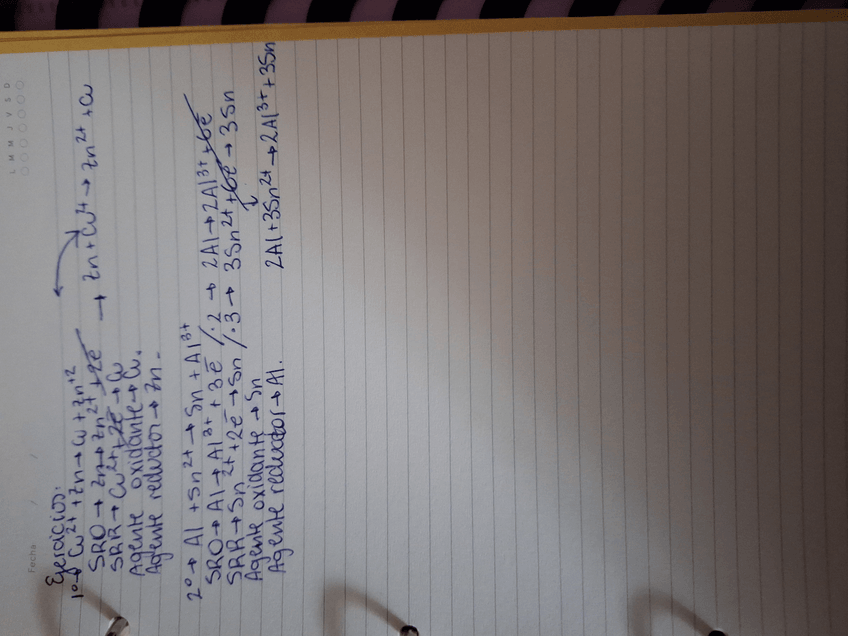 L M M J V S D
Fecha / /
Ejercicios.
1º→ Cu²⁺ + Zn → Cu + Zn⁺²
SRO → Zn → Zn²⁺ + 2e̅ → Zn + Cu²⁺ → Zn²⁺ + Cu
SRR → Cu²⁺ + 2e̅ → Cu
Agente oxidante → Cu.
Agente reductor → Zn.
2º → Al + Sn²⁺ → Sn + Al³⁺
SRO → Al → Al³⁺ + 3e̅ /·2 → 2Al → 2Al³⁺ + 6e̅
SRR → Sn²⁺ + 2e̅ → Sn /·3 → 3Sn²⁺ + 6e̅ → 3Sn
Agente oxidante → Sn ↓
Agente reductor → Al. 2Al + 3Sn²⁺ → 2Al³⁺ + 3Sn